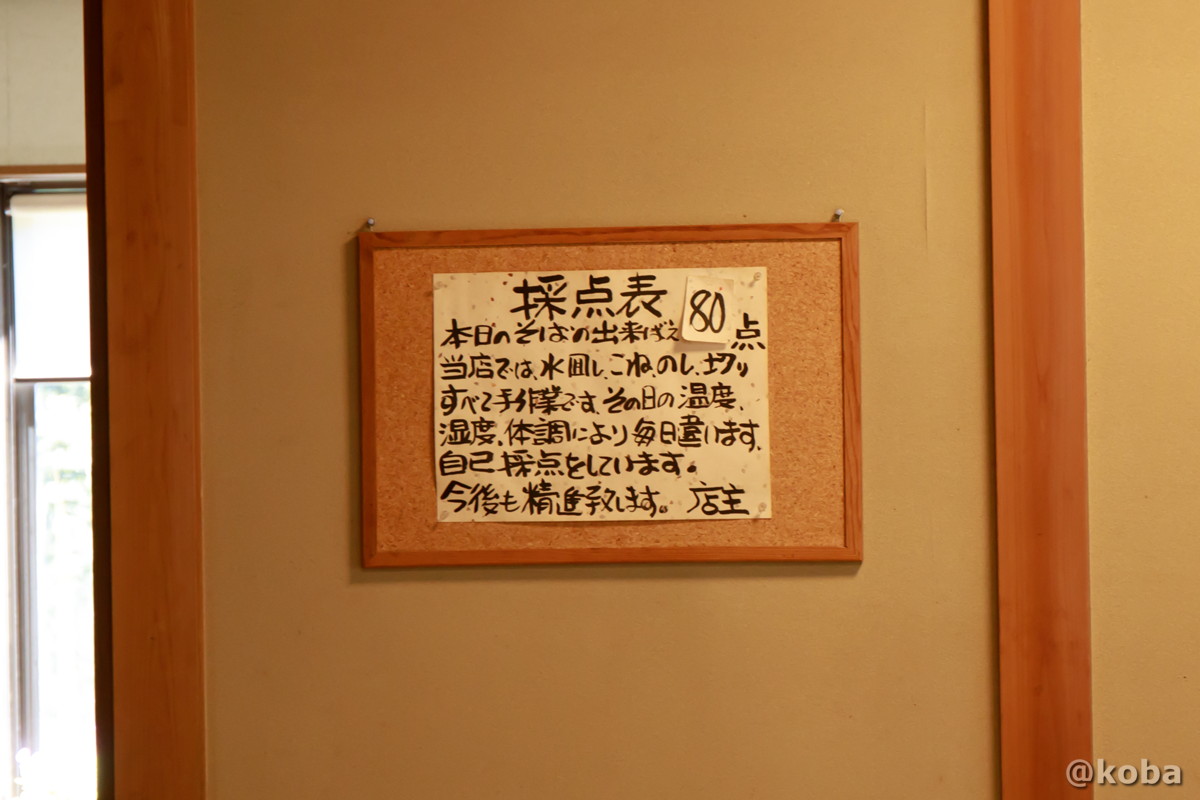 採点表
本日のそばの出来ばえ 80 点
当店では、水回し、こね、のし、切り
すべて手作業です、その日の温度、
湿度、体調により毎日違います、
自己採点をしています。
今後も精進致します。 店主
@koba